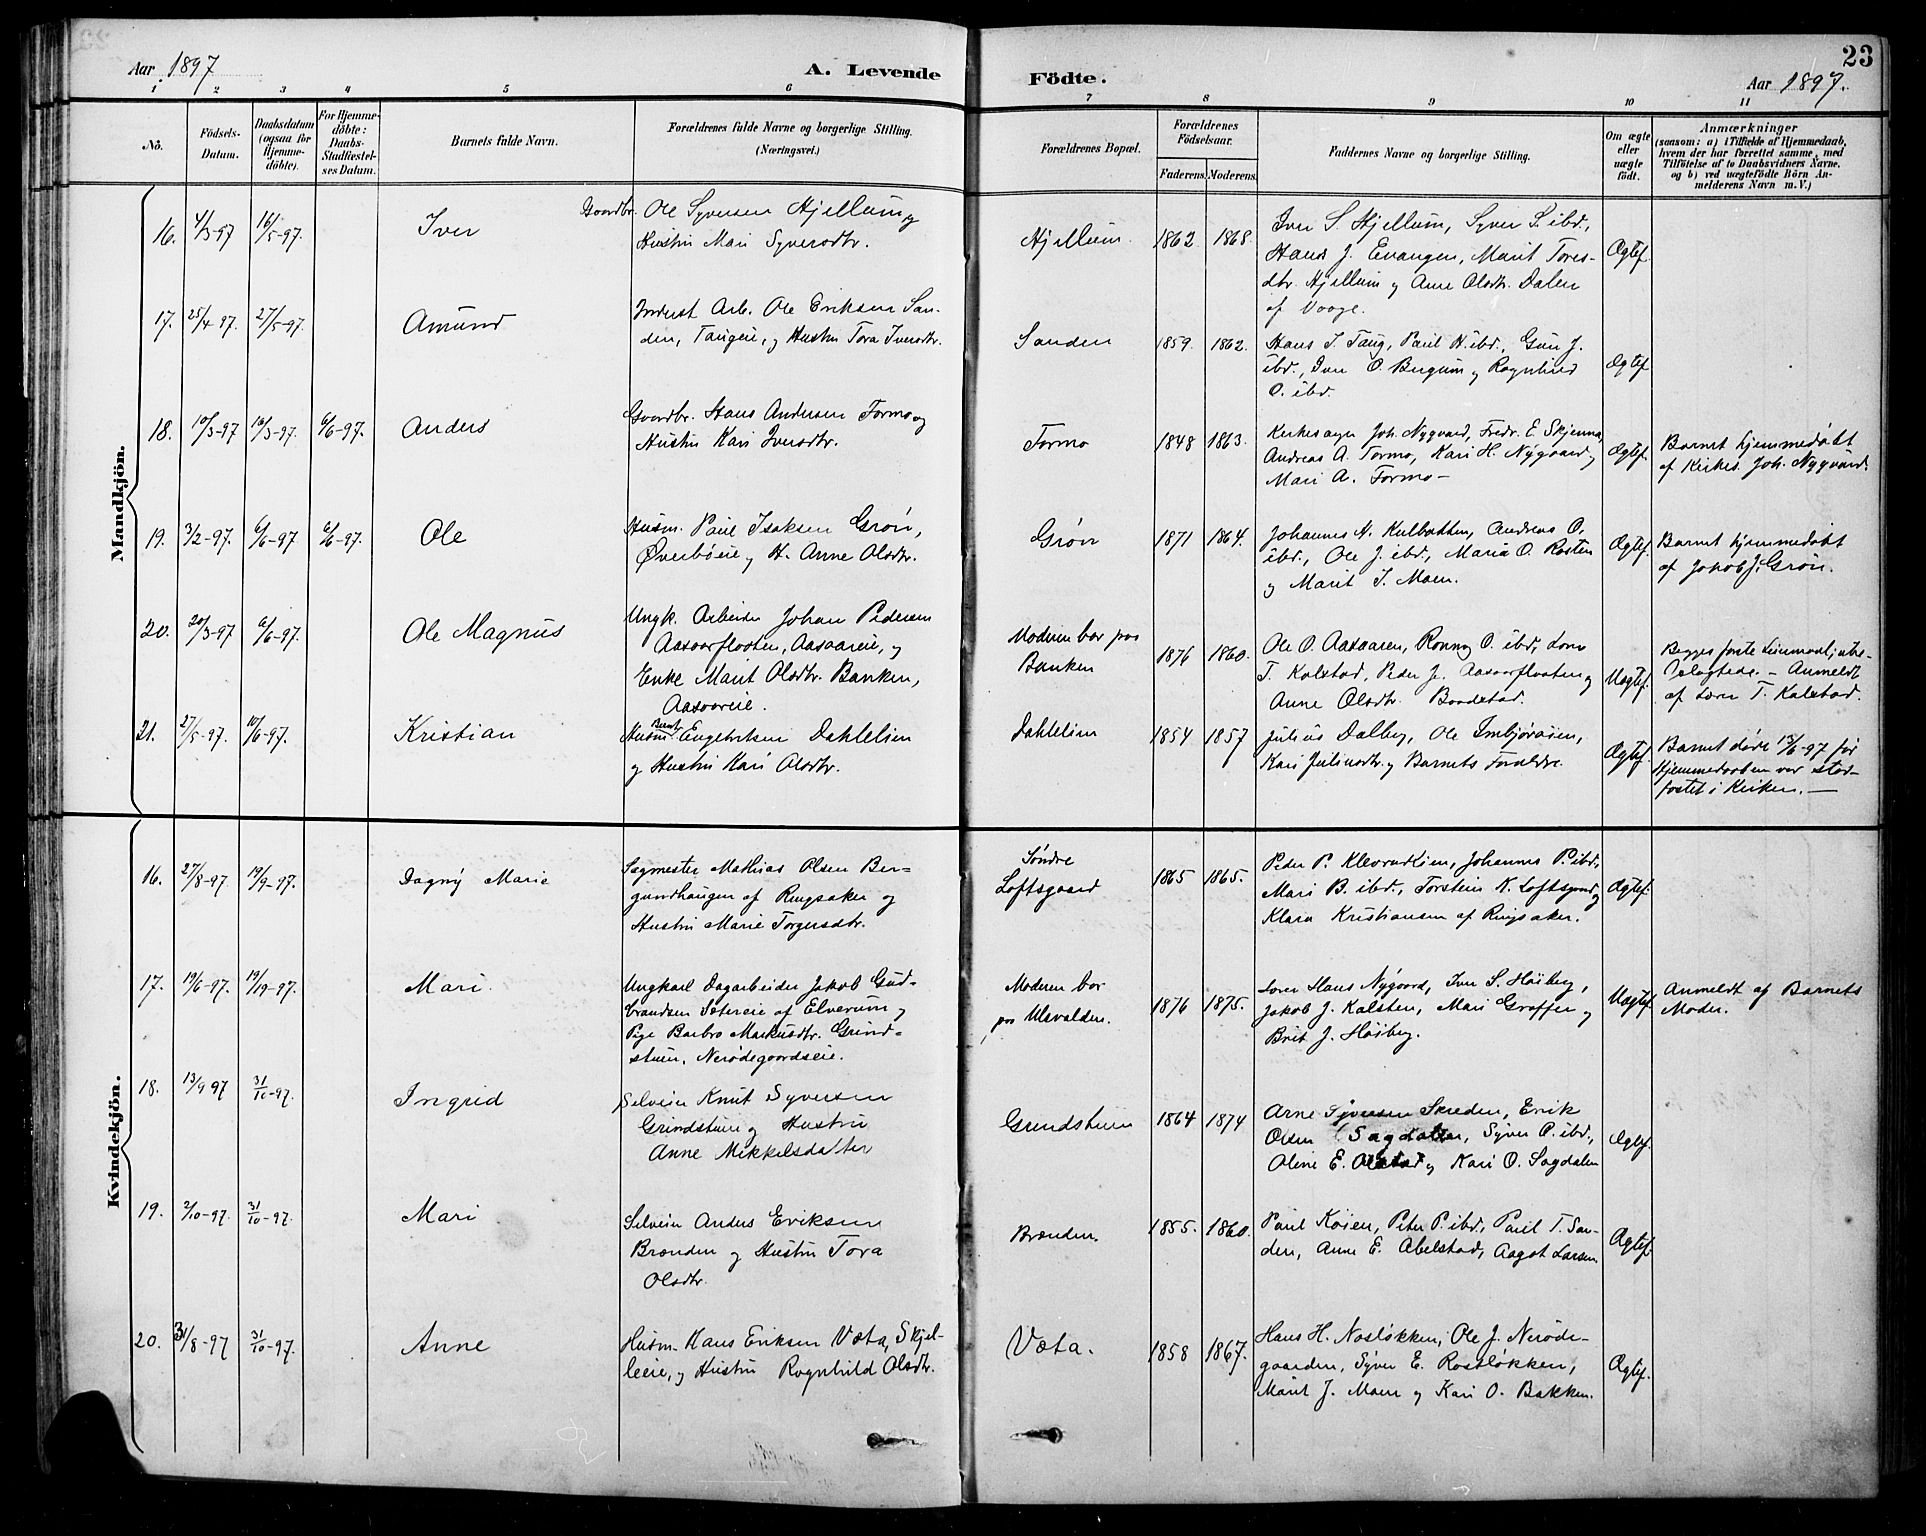 23
Aar 1897
A. Levende
Födte.
Aar 1897.
1 2 3 4 5 6 7 8 9 10 11
No.
Födsels-
Datum.
Daabsdatum
(ogsaa for
Hjemme-
döbte).
For Hjemme-
döbte:
Daabs-
Stadfæstel-
ses Datum.
Barnets fulde Navn.
Forældrenes fulde Navne og borgerlige Stilling.
(Næringsvei.)
Forældrenes Bopæl.
Forældrenes
Födselsaar.
Faderens. Moderens.
Faddernes Navne og borgerlige Stilling.
Om ægte
eller
uægte
født.
Anmærkninger
(saasom: a) i Tilfælde af Hjemmedaab,
hvem der har forrettet samme, med
Tilföielse af to Daabsvidners Navne,
og b) ved uægtefödte Börn An-
melderens Navn m. V.)
Mandkjön.
16. 4/5-97 16/5-97. Iver
Gaardbr. Ole Syversen Hjellum og
Hustru Mari Syversdtr.
Hjellum. 1862 1868.
Iver S. Hjellum, Syver S. ibd.,
Hans J. Evangen, Marit Tores-
dtr. Hjellum og Anne Olsdtr. Dalen
af Vaage.
Ægtef.
17. 25/4-97. 27/5-97. Amund
Inderst Arb. Ole Eriksen San-
den, Taugeie, og Hustru Tora Iversdtr.
Sanden 1859. 1862.
Hans T. Taug, Paul H. ibd., Gun J.
ibd., Iver O. Bergum og Ragnhild
O. ibd.
Ægtef.
18. 10/3-97 16/3-97. 6/6-97. Anders
Gaardbr. Hans Andersen Formo og
Hustru Kari Iversdtr.
Formo 1848 1863.
Kirkesanger Joh. Nygaard, Fredr. E. Skjenna,
Andreas A. Formo, Kari H. Nygaard og
Mari A. Formo -
Ægtef.
Barnet hjemmedøbt
af Kirkes. Joh. Nygaard.
19. 3/2-97. 6/6-97 6/6-97. Ole
Husm. Paul Isaksen Grøn,
Øverbøeie og H. Anne Olsdtr.
Grøn 1871 1864.
Johannes H. Kulbotten, Andreas O.
ibd., Ole J. ibd., Maria O. Rosten
og Marit J. Moen.
Ægtef.
Barnet hjemmedøbt
af Jakob J. Grøn.
20. 20/3-97 6/6-97. Ole Magnus
Ungk. Arbeider Johan Pedersen
Aasaarflaaten, Aasaareie, og
Enke Marit Olsdtr. Banken,
Aasaareie.
Moderen bor paa
Banken 1876 1860.
Ole O. Aasaaren, Ronnog O. ibd., Lars
T. Kalstad, Peder J. Aasaarflaaten og
Anne Olsdtr. Baadstad.
Uægtef.
Begges første Leiermaal, ube-
slægtede. - Anmeldt
af Lars T. Kalstad.
21. 27/5-97. 10/6-97. Kristian
Husm. Bernt Engebretsen Dahlelien
og Hustru Kari Olsdtr.
Dahlelien 1854 1857
Julius Dalby, Ole Imbjøråsen,
Kari Juliusdtr. og Barnets Forældre.
Ægtef.
Barnet døde 13/6-97 før
Hjemmedaaben var stad-
fæstet i Kirken. -
Kvindekjön.
16. 27/8-97. 19/9-97. Dagny Marie
Sagmester Mathias Olsen Ber-
gundhaugen af Ringsaker og
Hustru Marie Torgersdtr.
Søndre
Loftsgaard 1865 1865.
Peder P. Kleivrudlien, Johannes P. ibd.,
Mari B. ibd., Torstein K. Loftsgaard og
Klara Kristiansen af Ringsaker.
Ægtef.
17. 19/6-97. 19/19-97. Mari.
Ungkarl Dagarbeider Jakob Gud-
brandsen Sætereie af Elverum og
Pige Barbro Markusdtr. Grind-
stuen, Nerødegaardseie.
Moderen bor
paa Ulsvolden. 1876 1875.
Lærer Hans Nygaard, Iver S. Høiberg,
Jakob J. Kalsten, Mari Graffer og
Brit J. Høiberg.
Uægtef.
Anmeldt af Barnets
Moder.
18. 13/9 97 31/10-97. Ingrid
Selveier Knut Syversen
Grindstuen og Hustru
Anne Mikkelsdatter
Grindstuen 1864 1874
Arne Syversen Skreden, Erik
Olsen Sagdalen, Syver P. ibd.,
Oline E. og Kari O. Sagdalen
Ægtef.
19. 2/10-97. 31/10-97. Mari
Selveier Anders Eriksen
Brænden og Hustru Tora
Olsdtr.
Brænden. 1855. 1860.
Paul Køien, Peter P. ibd., Paul T. San-
den, Anne E. Abelstad, Aagot Larsen
Ægtef.
20. 31/8-97 31/10-97. Anne
Husm. Hans Eriksen Væta, Skjel-
leeie, og Hustru Ragnhild Olsdtr.
Væta. 1858 1867.
Hans H. Nosløkken, Ole J. Nerøde-
gaarden, Syver E. Rosteløkken,
Marit J. Moen og Kari O. Bakken.
Ægtef.